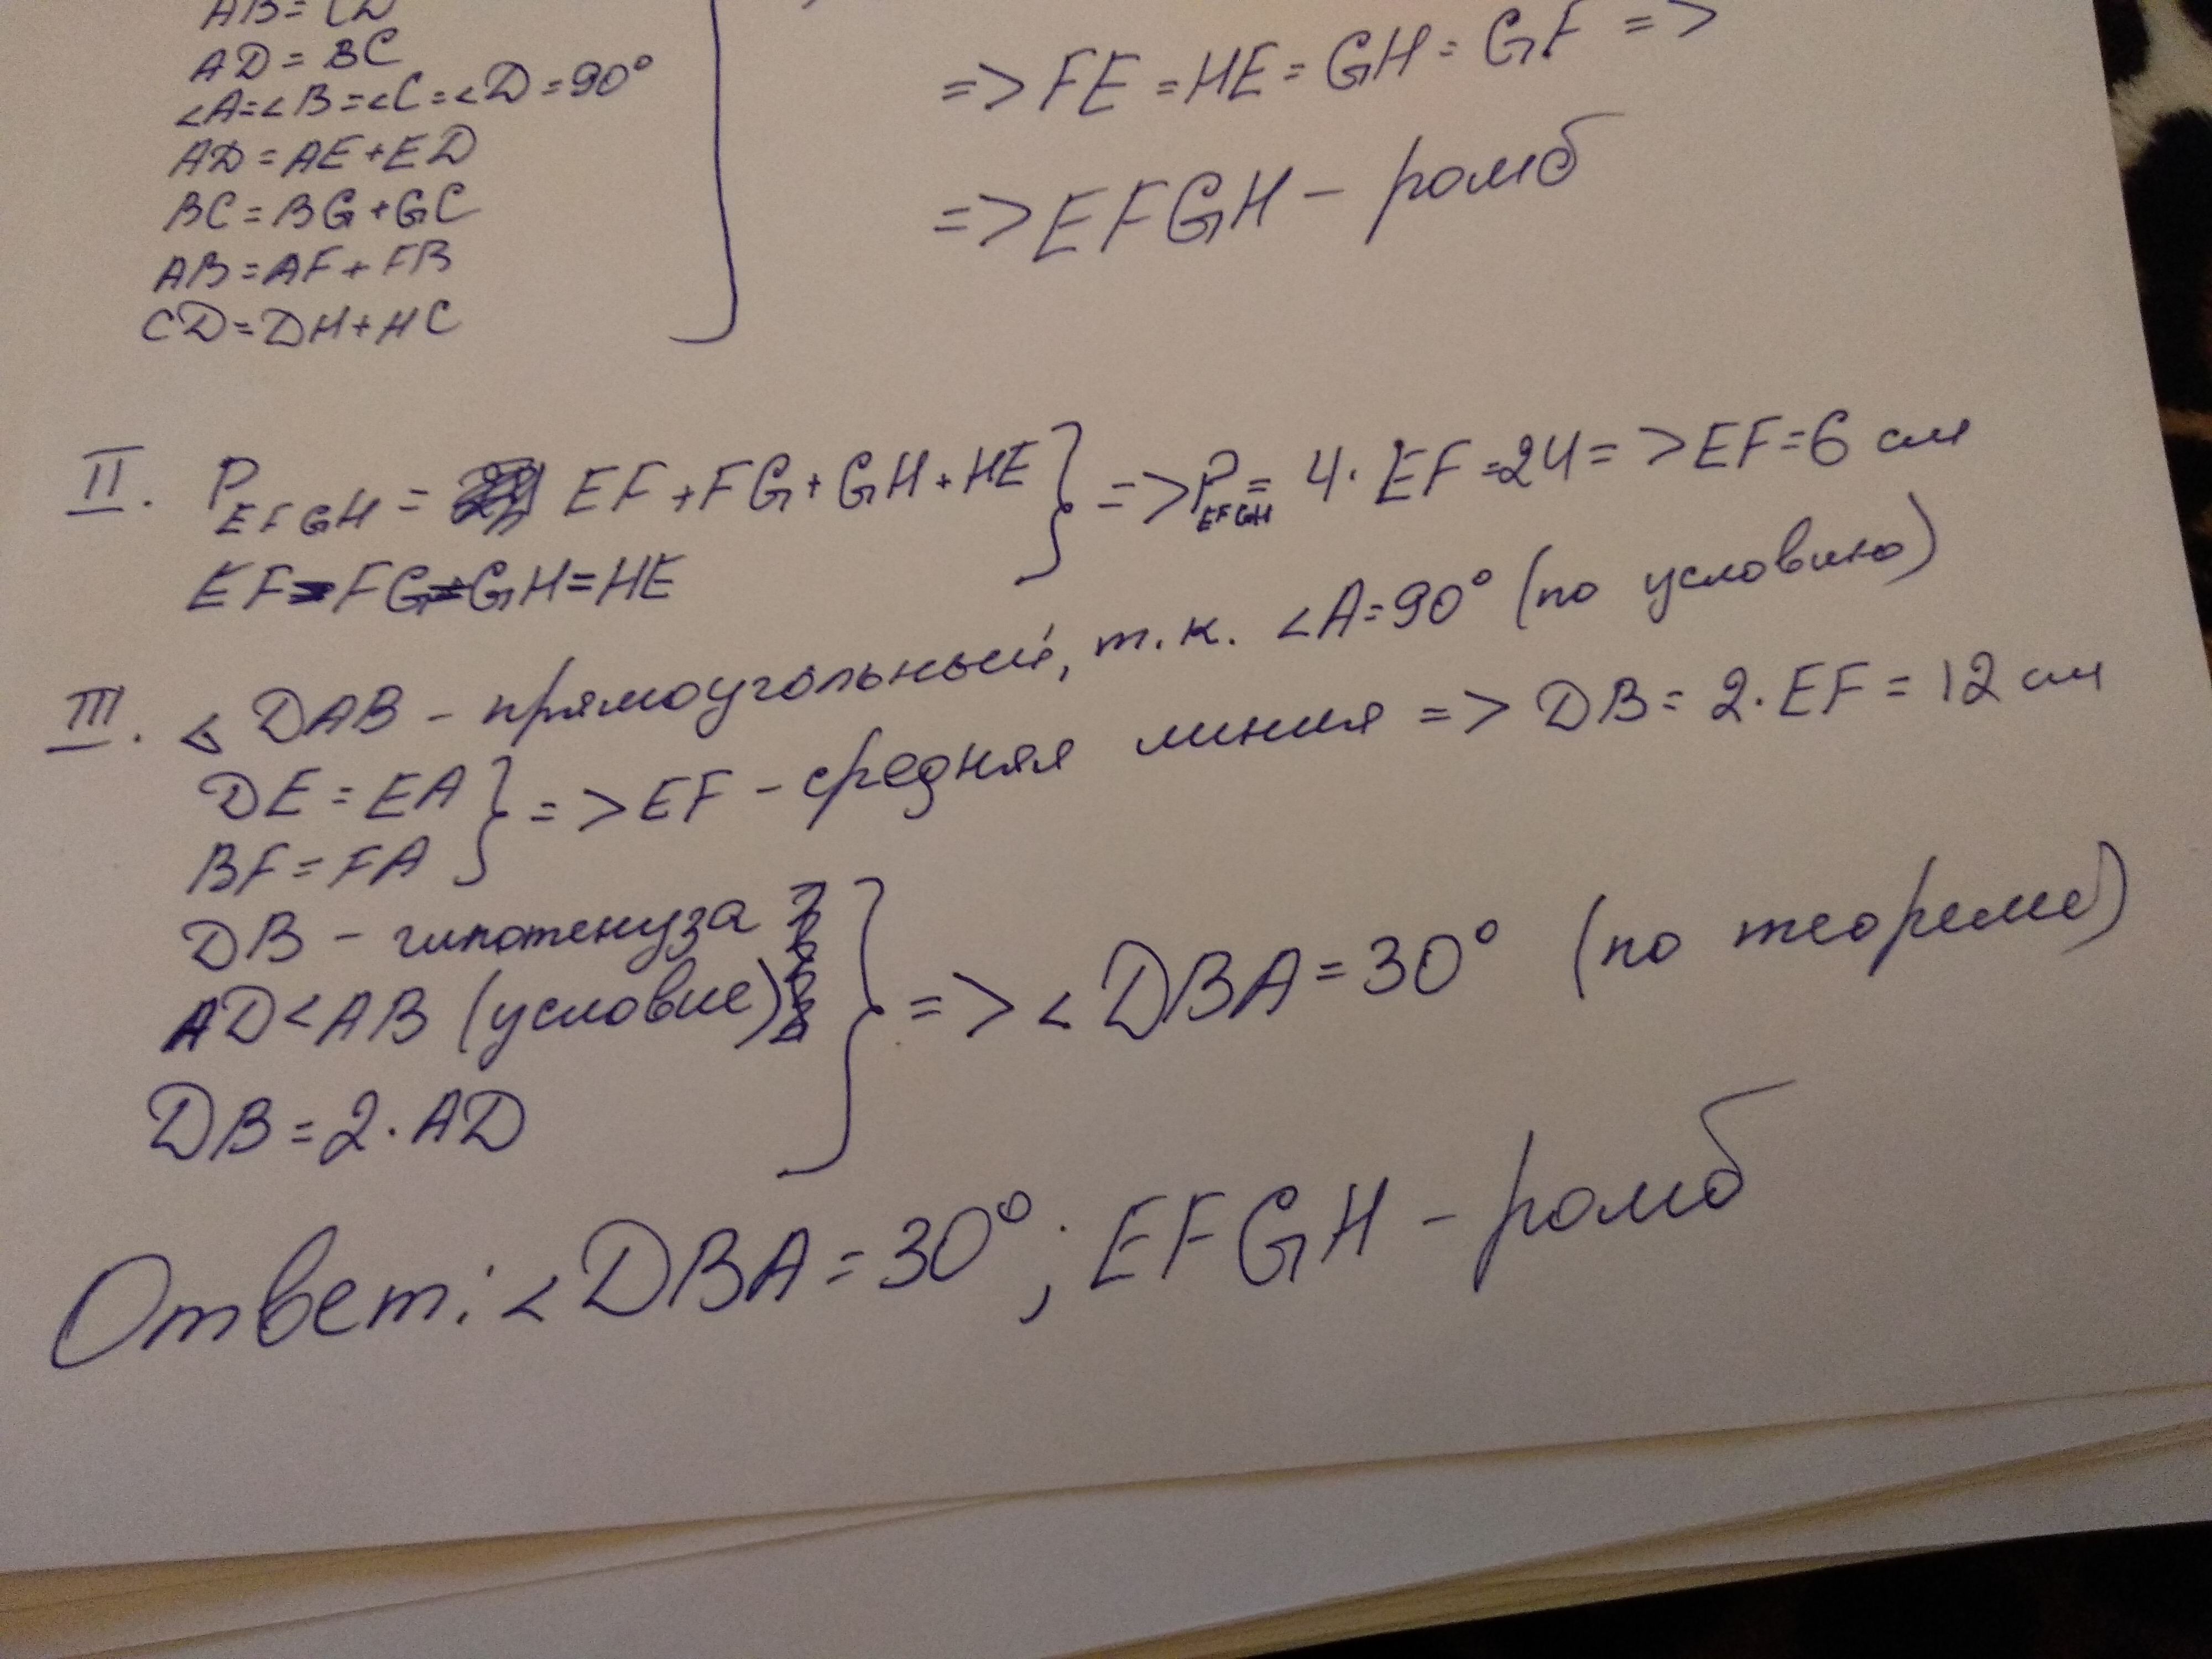 AB = CD
AD = BC
∠A=∠B=∠C=∠D=90°
AD = AE+ED
BC = BG+GC
AB = AF + FB
CD = DH+HC
=> FE = HE = GH = GF =>
=> EFGH - ромб
II. P EFGH = EF + FG + GH + HE } => P EFGH = 4 · EF = 24 => EF = 6 см
EF = FG = GH = HE
III. ⊿ DAB - прямоугольный, т.к. ∠A = 90° (по условию)
DE = EA } => EF - средняя линия => DB = 2 · EF = 12 см
BF = FA
DB - гипотенуза
AD < AB (условие) } => ∠DBA = 30° (по теореме)
DB = 2 · AD
Ответ: ∠DBA = 30°; EFGH - ромб